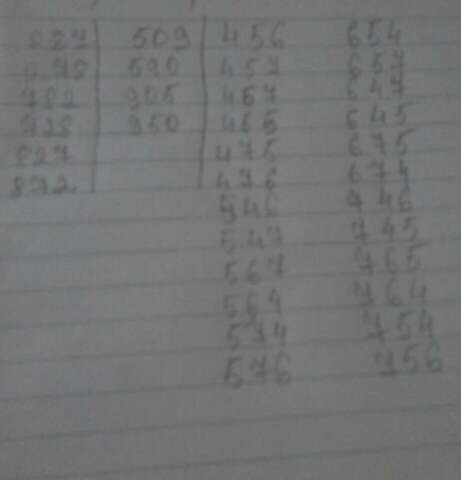 509 456 654
278 590 457 657
782 905 467 647
728 950 465 645
827 475 675
872 476 674
546 746
547 745
567 765
564 764
574 754
576 756